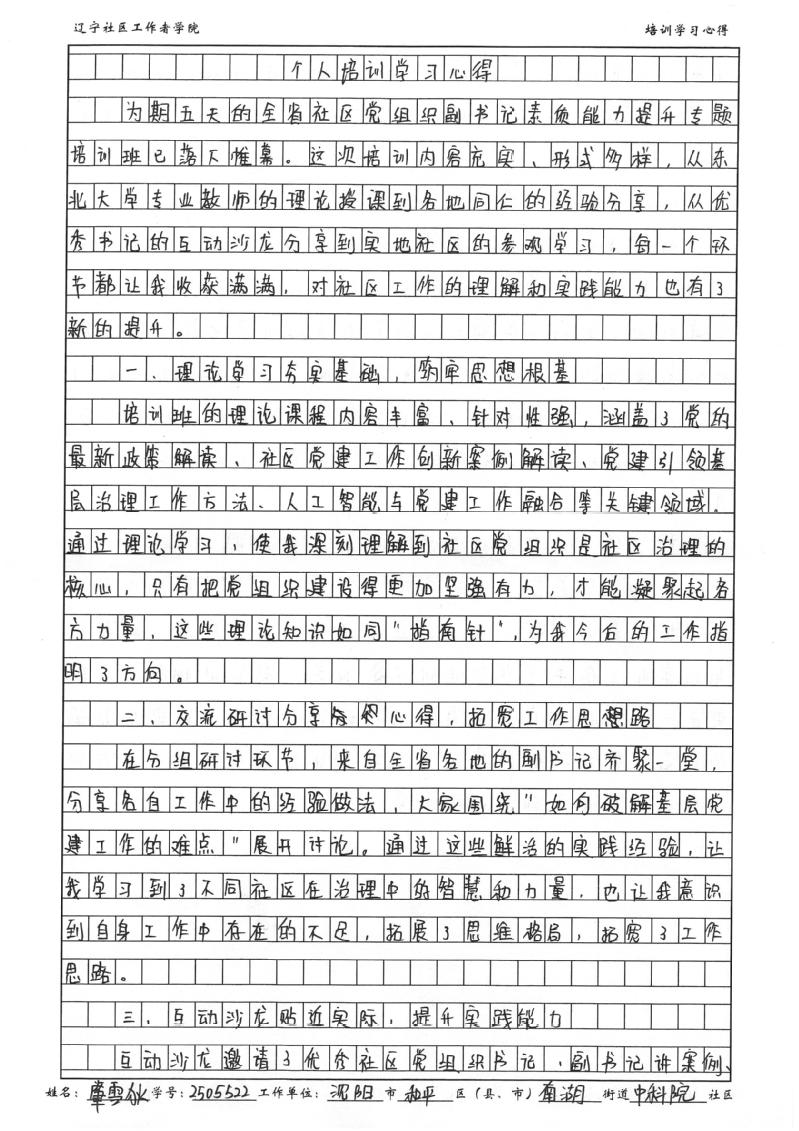 辽宁社区工作者学院 培训学习心得
个人培训学习心得
为期五天的全省社区党组织副书记素质能力提升专题
培训班已落下帷幕。这次培训内容充实、形式多样，从东
北大学专业教师的理论授课到各地同仁的经验分享，从优
秀书记的互动沙龙分享到实地社区的参观学习，每一个环
节都让我收获满满，对社区工作的理解和实践能力也有了
新的提升。
一、理论学习夯实基础，筑牢思想根基
培训班的理论课程内容丰富、针对性强，涵盖了党的
最新政策解读、社区党建工作创新案例解读、党建引领基
层治理工作方法、人工智能与党建工作融合等关键领域。
通过理论学习，使我深刻理解到社区党组织是社区治理的
核心，只有把党组织建设得更加坚强有力，才能凝聚起各
方力量，这些理论知识如同"指南针"，为我今后的工作指
明了方向。
二、交流研讨分享心得，拓宽工作思想路
在分组研讨环节，来自全省各地的副书记齐聚一堂，
分享各自工作中的经验做法，大家围绕"如何破解基层党
建工作的难点"展开讨论。通过这些鲜活的实践经验，让
我学习到了不同社区在治理中的智慧和力量，也让我意识
到自身工作中存在的不足，拓展了思维格局，拓宽了工作
思路。
三、互动沙龙贴近实际，提升实践能力
互动沙龙邀请了优秀社区党组织书记、副书记讲案例、
姓名： 学号：2505522 工作单位：沈阳 市 和平 区（县、市）南湖 街道 中科院 社区